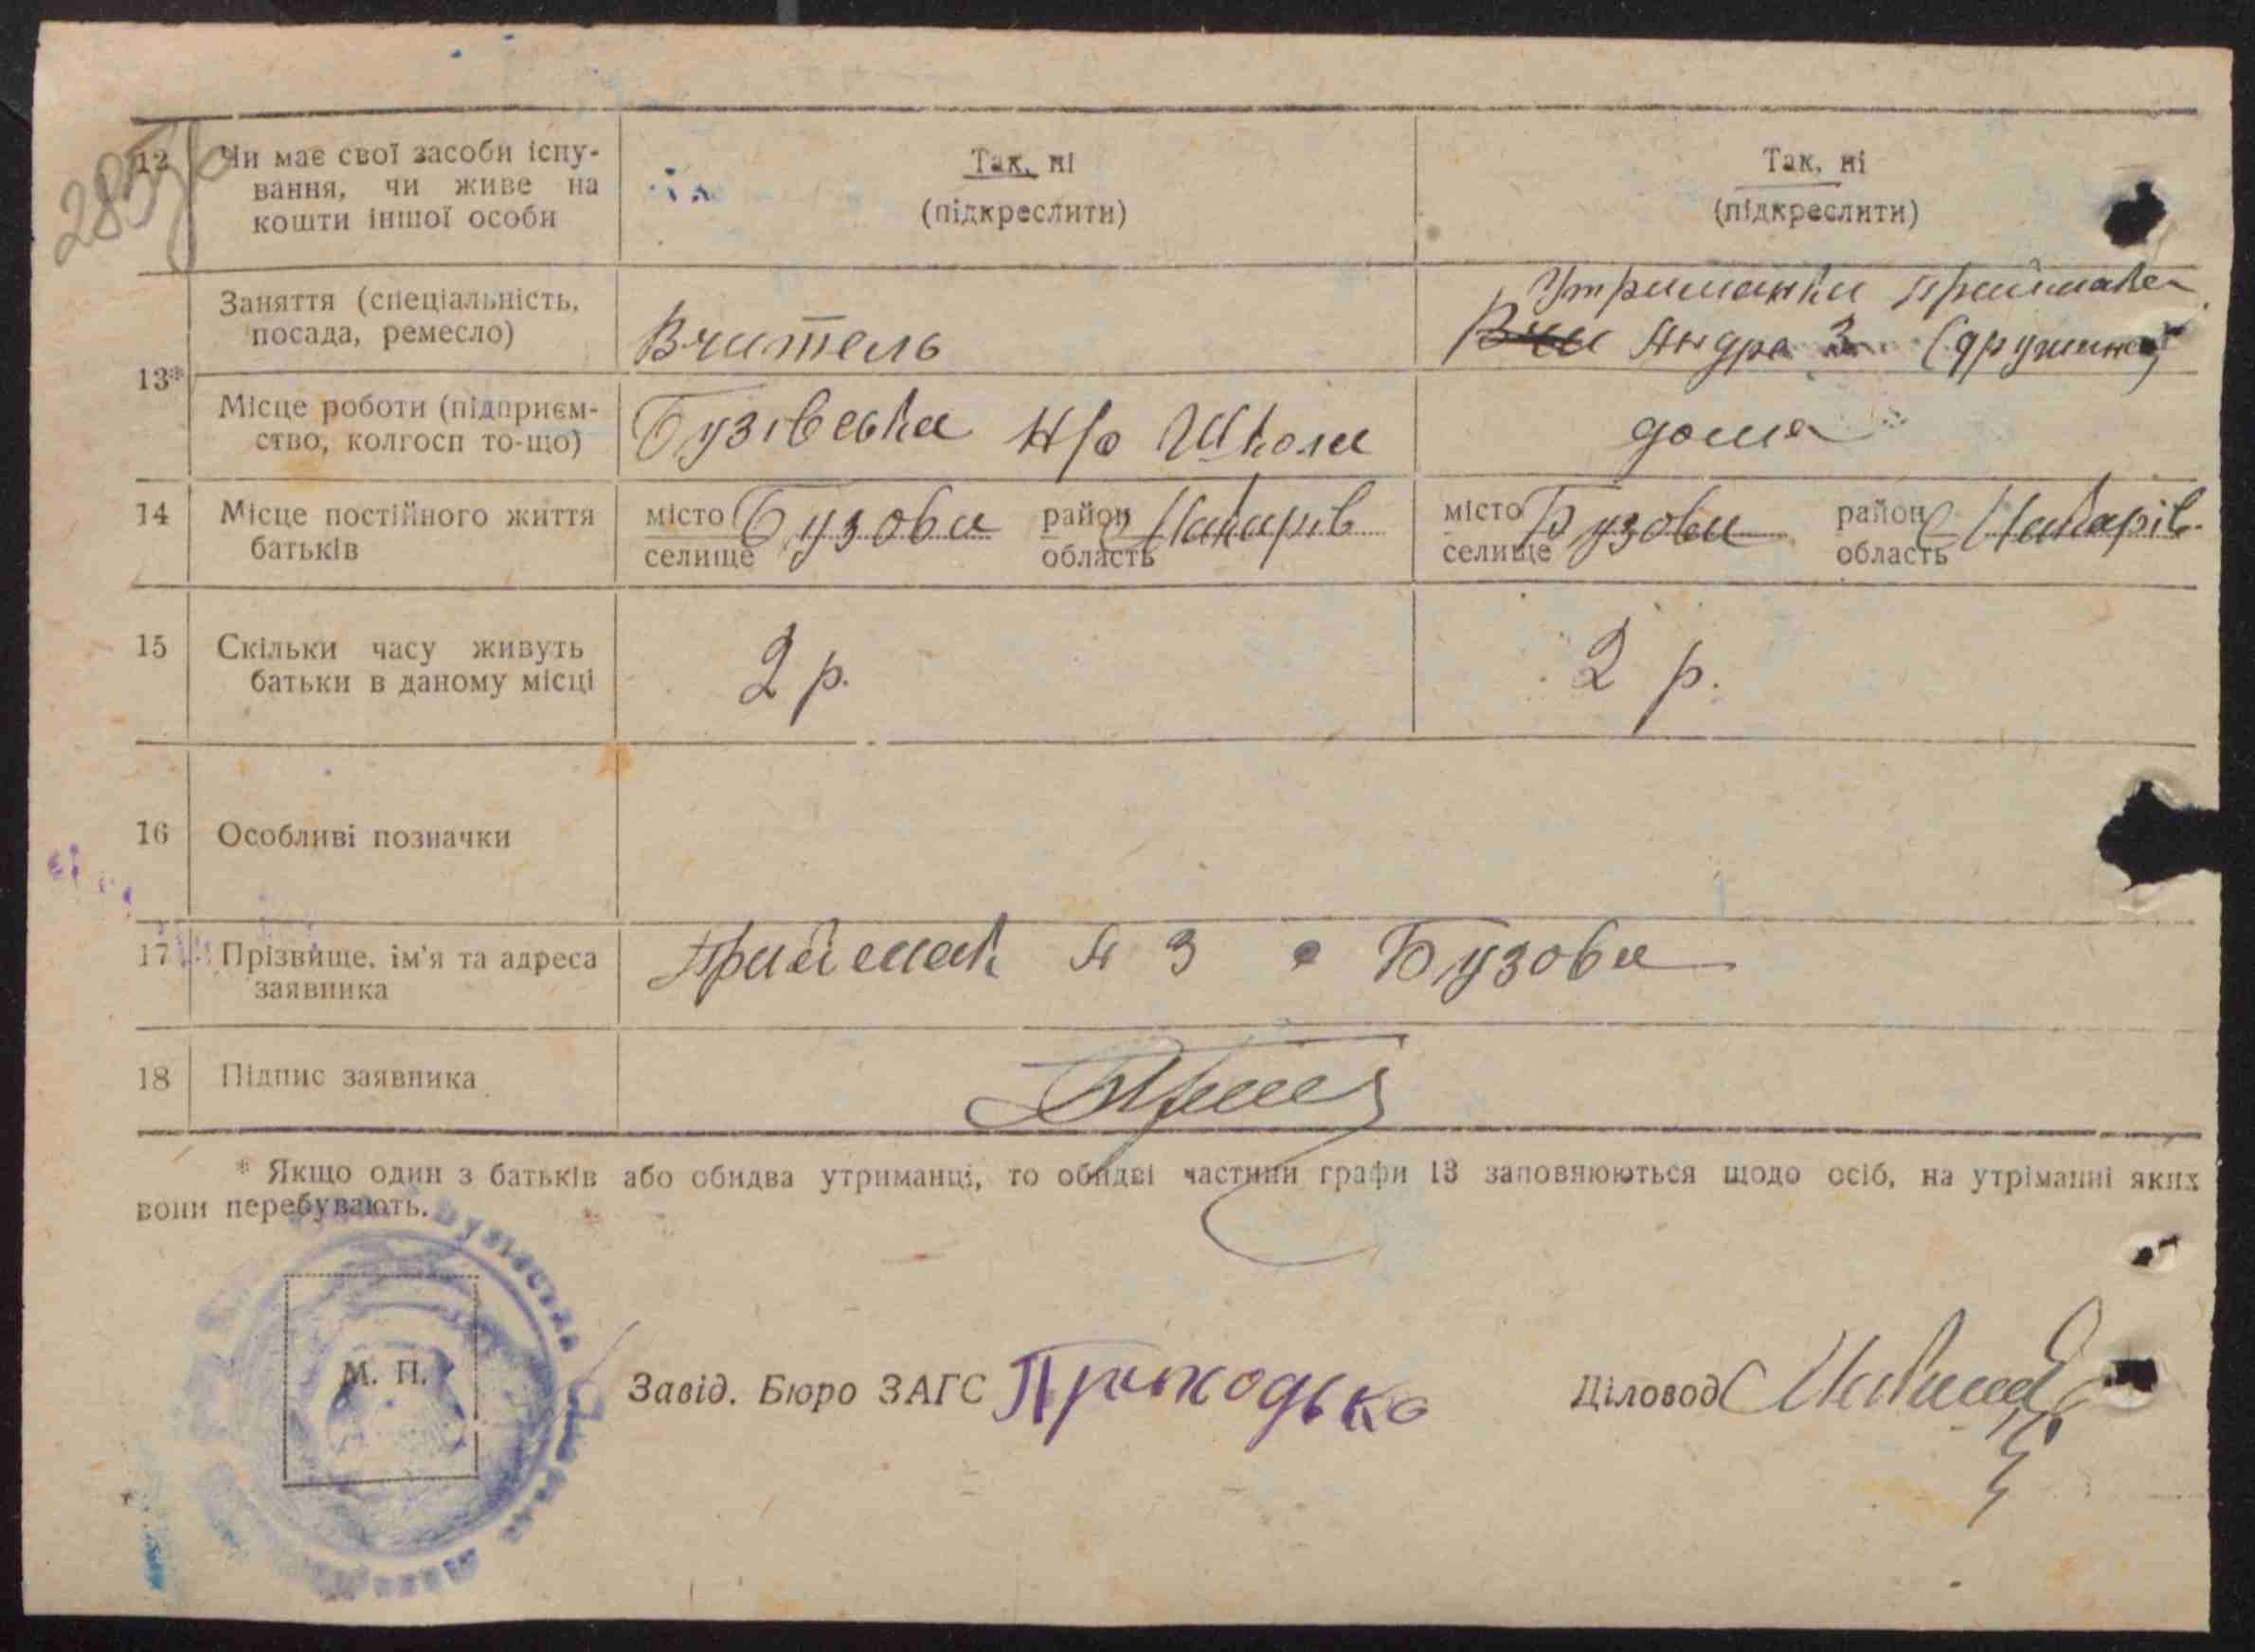 285
12
Чи має свої засоби існу-
вання, чи живе на
кошти іншої особи
Так, ні
(підкреслити)
Так, ні
(підкреслити)
13*
Заняття (спеціальність,
посада, ремесло)
Вчитель
Утриманка Приймака
Вчи Андре З (дружина)
Місце роботи (підприєм-
ство, колгосп то-що)
Бузівська Н/с Школа
дома
14
Місце постійного життя
батьків
місто
селище
Бузова
район
область
Макарів
місто
селище
Бузова
район
область
Макарів
15
Скільки часу живуть
батьки в даному місці
2 р.
2 р.
16
Особливі позначки
17
Прізвище, ім'я та адреса
заявника
Приймак А З с Бузова
18
Підпис заявника
* Якщо один з батьків або обидва утриманці, то обидві частини графи 13 заповнюються щодо осіб, на утріманні яких
вони перебувають.
М. П.
Завід. Бюро ЗАГС Приходько
Діловод